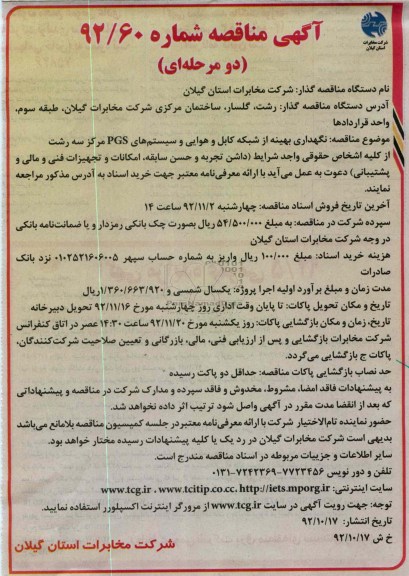 شرکت مخابرات
استان گیلان
آگهی مناقصه شماره ۹۲/۶۰
(دو مرحله‌ای)
نام دستگاه مناقصه گذار: شرکت مخابرات استان گیلان
آدرس دستگاه مناقصه گذار: رشت، گلسار، ساختمان مرکزی شرکت مخابرات گیلان، طبقه سوم،
واحد قراردادها
موضوع مناقصه: نگهداری بهینه از شبکه کابل و هوایی و سیستم‌های PGS مرکز سه رشت
از کلیه اشخاص حقوقی واجد شرایط (داشتن تجربه و حسن سابقه، امکانات و تجهیزات فنی و مالی و
پشتیبانی) دعوت به عمل می‌آید با ارائه معرفی‌نامه معتبر جهت خرید اسناد به آدرس مذکور مراجعه
نمایند.
آخرین تاریخ فروش اسناد مناقصه: چهارشنبه ۹۲/۱۱/۲ ساعت ۱۴
سپرده شرکت در مناقصه: به مبلغ ۵۴/۵۰۰/۰۰۰ ریال بصورت چک بانکی رمزدار و یا ضمانت‌نامه بانکی
در وجه شرکت مخابرات استان گیلان
هزینه خرید اسناد: مبلغ ۱۰۰/۰۰۰ ریال واریز به شماره حساب سپهر ۰۱۰۲۵۲۱۶۰۶۰۰۵ نزد بانک
صادرات
مدت زمان و مبلغ برآورد اولیه اجرا پروژه: یکسال شمسی و ۱/۳۶۰/۶۶۳/۹۲۰ریال
تاریخ و مکان تحویل پاکات: تا پایان وقت اداری روز چهارشنبه مورخ ۹۲/۱۱/۱۶ تحویل دبیرخانه
تاریخ، زمان و مکان بازگشایی پاکات: روز یکشنبه مورخ ۹۲/۱۱/۲۰ ساعت ۱۴:۳۰ عصر در اتاق کنفرانس
شرکت مخابرات بازگشایی و پس از ارزیابی فنی، مالی، بازرگانی و تعیین صلاحیت شرکت‌کنندگان،
پاکات ج بازگشایی می‌گردد.
حد نصاب بازگشایی پاکات مناقصه: حداقل دو پاکت رسیده
به پیشنهادات فاقد امضا، مشروط، مخدوش و فاقد سپرده و مدارک شرکت در مناقصه و پیشنهاداتی
که بعد از انقضا مدت مقرر در آگهی واصل شود ترتیب اثر داده نخواهد شد.
حضور نماینده تام‌الاختیار شرکت با ارائه معرفی‌نامه معتبر در جلسه کمیسیون مناقصه بلامانع می‌باشد
بدیهی است شرکت مخابرات گیلان در رد یک یا کلیه پیشنهادات رسیده مختار خواهد بود.
سایر اطلاعات و جزییات مربوطه در اسناد مناقصه مندرج است.
تلفن و دور نویس ۷۷۲۳۴۵۶-۷۲۴۲۳۶۹-۰۱۳۱
سایت اینترنتی: www.tcg.ir ، www.tcitip.co.cc، http://iets.mporg.ir
توجه: جهت رویت آگهی در سایت www.tcg.ir از مرورگر اینترنت اکسپلورر استفاده نمایید.
تاریخ انتشار: ۹۲/۱۰/۱۷
خ ش ۹۲/۱۰/۱۷
شرکت مخابرات استان گیلان